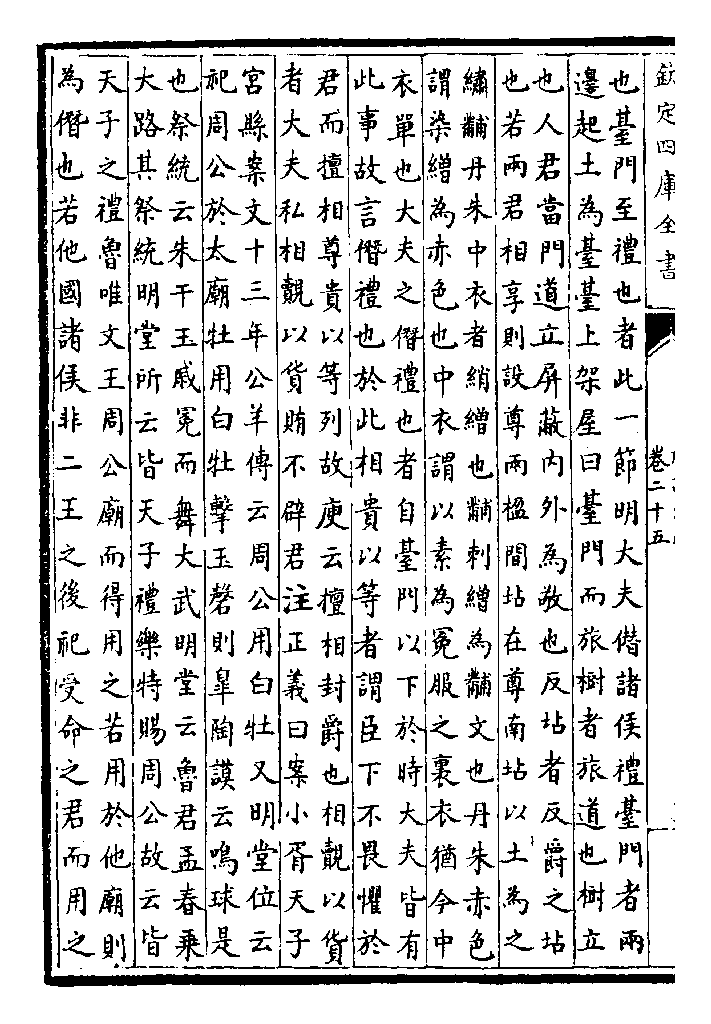 欽定四庫全書
卷二十五
也臺門至禮也者此一節明大夫偕諸侯禮臺門者兩
邊起土為臺臺上架屋曰臺門而旅樹者旅道也樹立
也人君當門道立屏蔽內外為敬也反坫者反爵之坫
也若兩君相享則設尊兩楹間坫在尊南坫以土為之
繡黼丹朱中衣者綃繒也黼刺繒為黼文也丹朱赤色
謂染繒為赤色也中衣謂以素為冕服之裏衣猶今中
衣單也大夫之僭禮也者自臺門以下於時大夫皆有
此事故言僭禮也於此相貴以等者謂臣下不畏懼於
君而擅相尊貴以等列故庾云擅相封爵也相覿以貨
者大夫私相覿以貨賄不辟君注正義曰案小胥天子
宮縣案文十三年公羊傳云周公用白牡又明堂位云
祀周公於太廟牡用白牡擊玉磬則臯陶謨云鳴球是
也祭統云朱干玉戚冕而舞大武明堂云魯君孟春乘
大路其祭統明堂所云皆天子禮樂特賜周公故云皆
天子之禮魯唯文王周公廟而得用之若用於他廟則
為僭也若他國諸侯非二王之後祀受命之君而用之